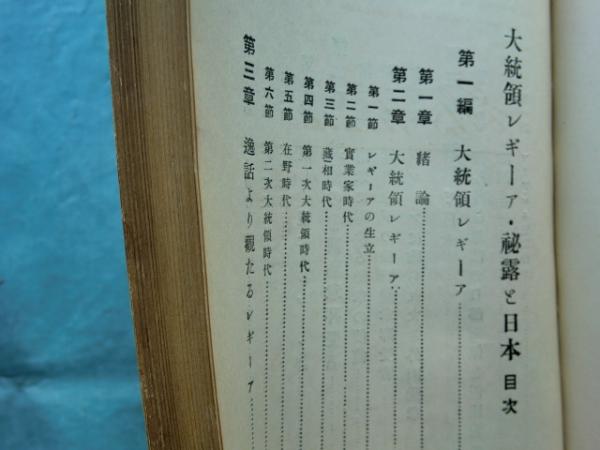 大統領レギーア・祕露と日本 目次
第一編 大統領レギーア
第一章 緒論
第二章 大統領レギーア
第一節 レギーアの生立
第二節 實業家時代
第三節 藏相時代
第四節 第一次大統領時代
第五節 在野時代
第六節 第二次大統領時代
第三章 逸話より觀たるレギーア